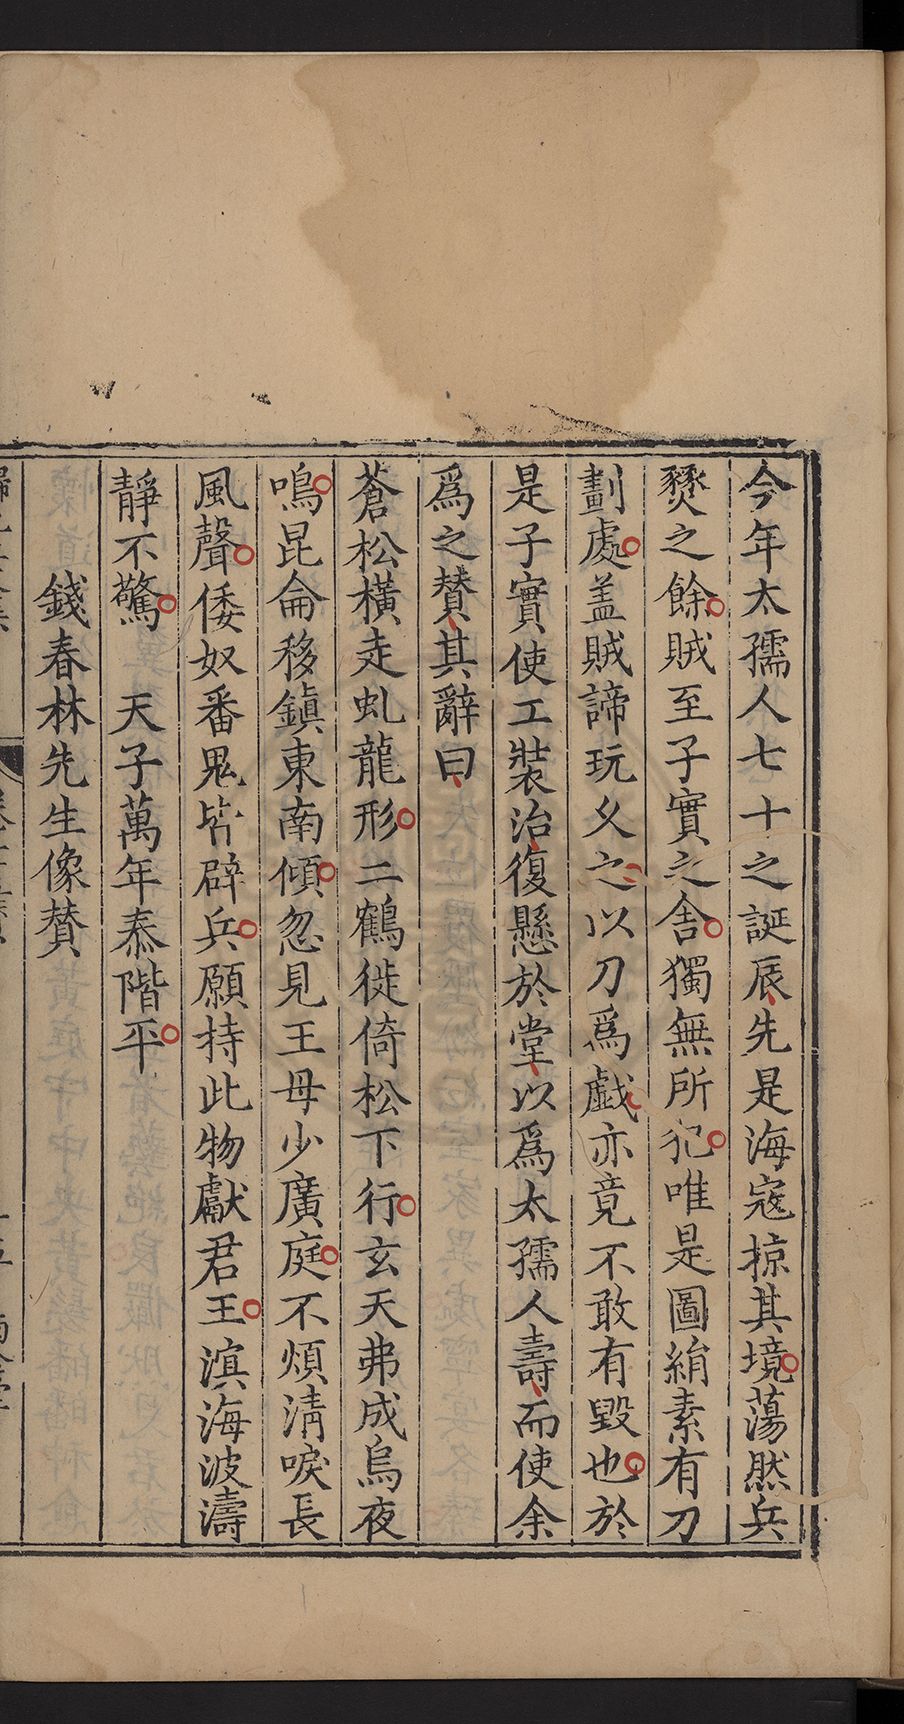 今年太孺人七十之誕辰先是海寇掠其境蕩然兵
燹之餘賊至子實之舍獨無所犯唯是圖綃素有刀
劃處盖賊諦玩乆之以刀爲戯亦竟不敢有毀也於
是子實使工裝治復懸於堂以爲太孺人壽而使余
爲之賛其辭曰
蒼松橫走虬龍形二鶴徙倚松下行玄天弗成烏夜
鳴昆侖移鎮東南傾忽見王母少廣庭不煩淸唳長
風聲倭奴番鬼皆辟兵願持此物獻君王滇海波濤
靜不驚　天子萬年泰階平
錢春林先生像賛